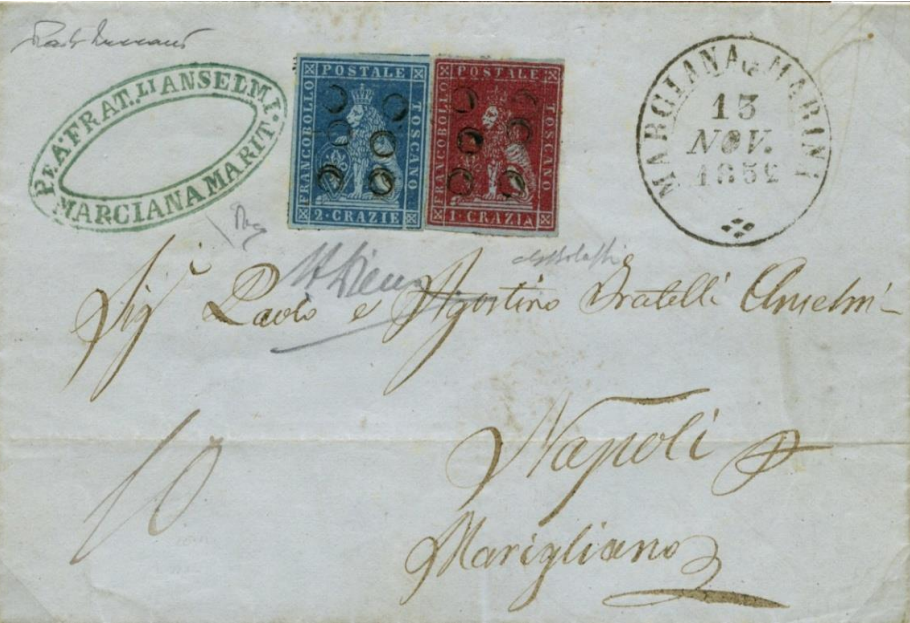 P. E A. FRAT.LLI ANSELMI
MARCIANA MARIT.
FRANCOBOLLO POSTALE TOSCANO
2 · CRAZIE
FRANCOBOLLO POSTALE TOSCANO
1 · CRAZIA
MARCIANA MARINA
13
NOV.
1852
Sig.ri Paolo e Agostino Fratelli Anselmi
10
Napoli
Marigliano